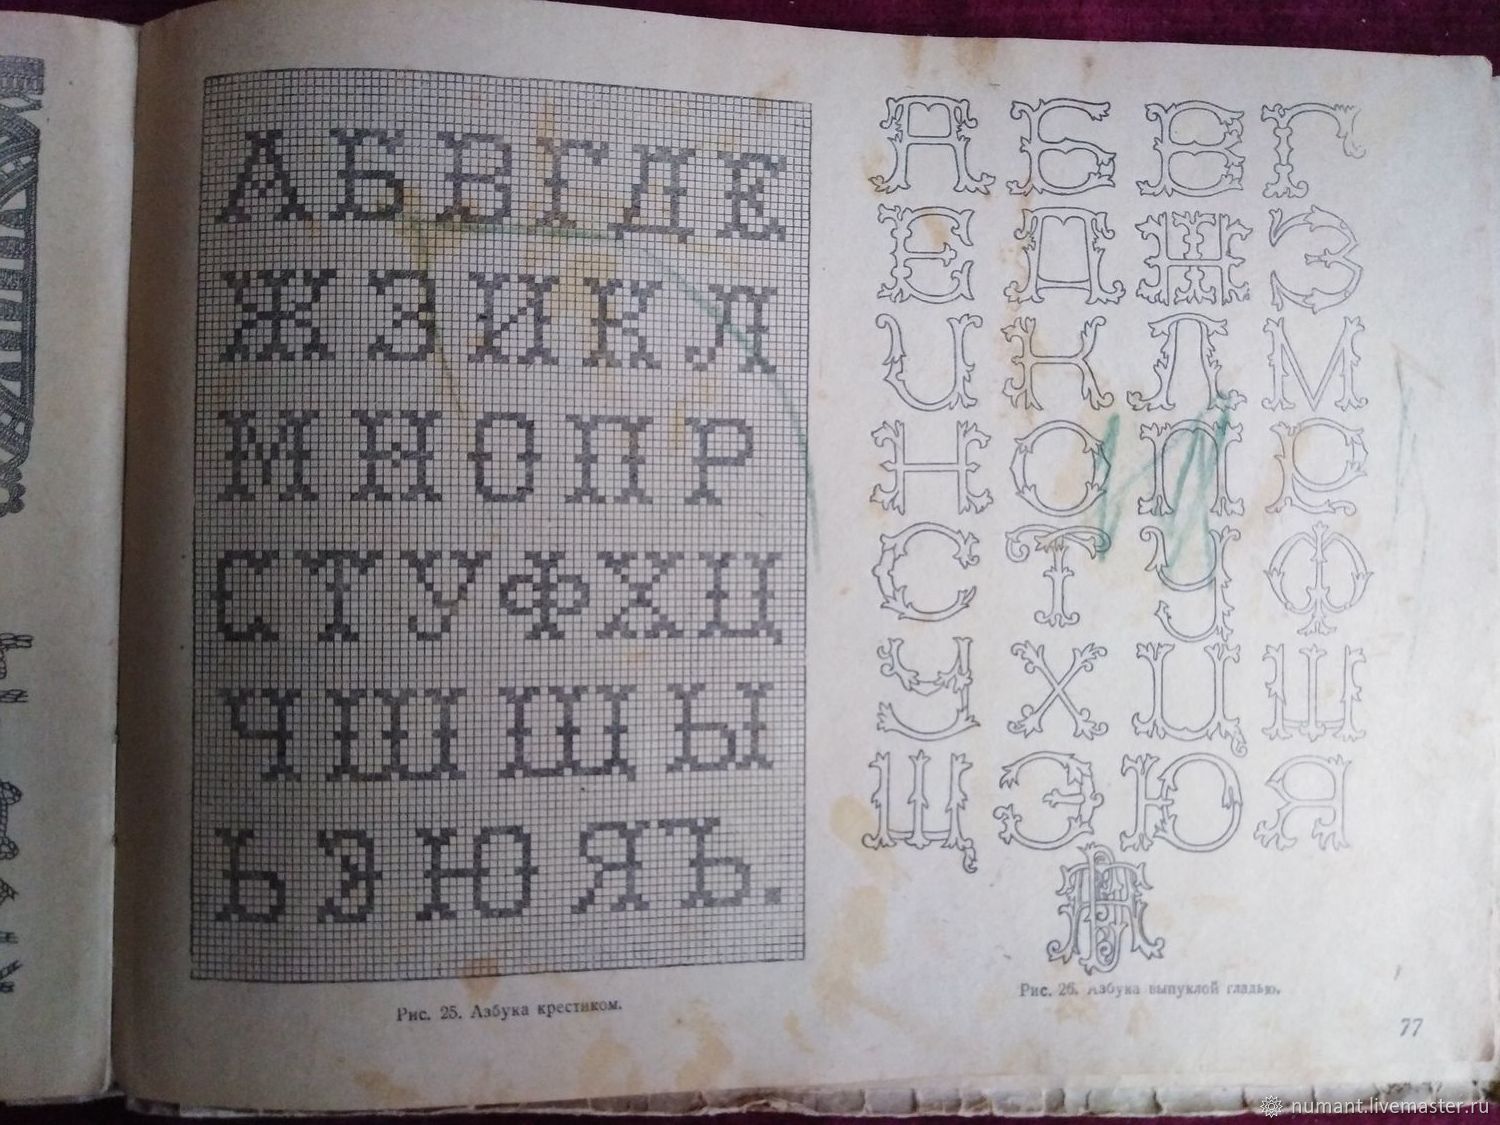 АБВГДЕ
ЖЗИКЛ
МНОПР
СТУФХЦ
ЧШЩЫ
ЬЭЮЯЪ.
Рис. 25. Азбука крестиком.
АБВГ
ЕДЖЗ
ИКЛМ
НОПР
СТУФ
УХЦШ
ЩЭЮЯ
Рис. 26. Азбука выпуклой гладью.
77
numant.livemaster.ru